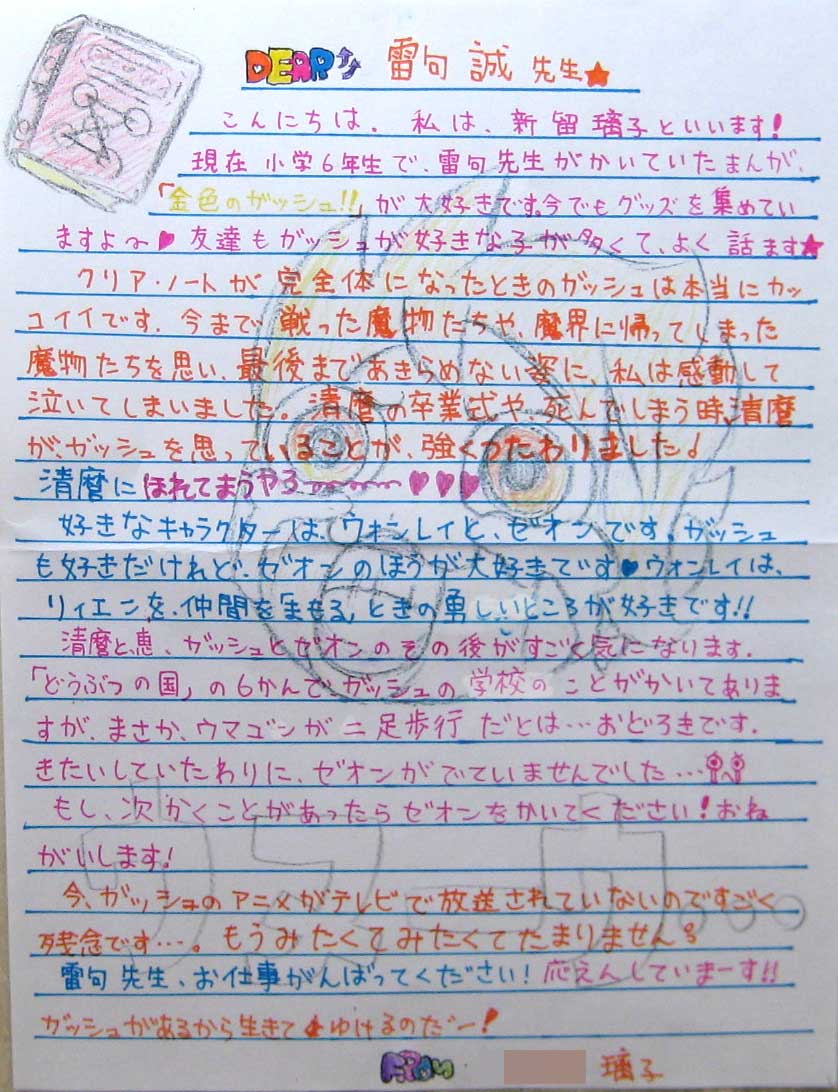 DEAR 雷句 誠 先生★
こんにちは。私は、新留璃子といいます!
現在小学6年生で、雷句先生がかいていたまんが、
「金色のガッシュ!!」が大好きです。今でもグッズを集めてい
ますよ~♥友達もガッシュが好きな子が多くて、よく話ます★
クリア・ノートが完全体になったときのガッシュは本当にカッ
コイイです。今まで戦った魔物たちや、魔界に帰ってしまった
魔物たちを思い、最後まであきらめない姿に、私は感動して
泣いてしまいました。清麿の卒業式や、死んでしまう時、清麿
が、ガッシュを思っていることが、強くつたわりました♩
清麿にほれてまうヤろ~~~~♥♥♥
好きなキャラクターは、ウォンレイと、ゼオンです。ガッシュ
も好きだけれど、ゼオンのほうが大好きです♥ウォンレイは、
リィエンを、仲間を「まもる」ときの勇しいところが好きです!!
清麿と、恵、ガッシュとゼオンのその後がすごく気になります。
「どうぶつの国」の6かんで、ガッシュの学校のことがかいてありま
すが、まさか、ウマゴンが二足歩行だとは…おどろきです。
きたいしていたわりに、ゼオンがでていませんでした…
もし、次かくことがあったらゼオンをかいてください!おね
がいします!
今、ガッシュのアニメがテレビで放送されていないのですごく
残念です…。もうみたくてみたくてたまりません。
雷句先生、お仕事がんばってください!応えんしていまーす!!
ガッシュがあるから生きてゆけるのだー!
From 璃子